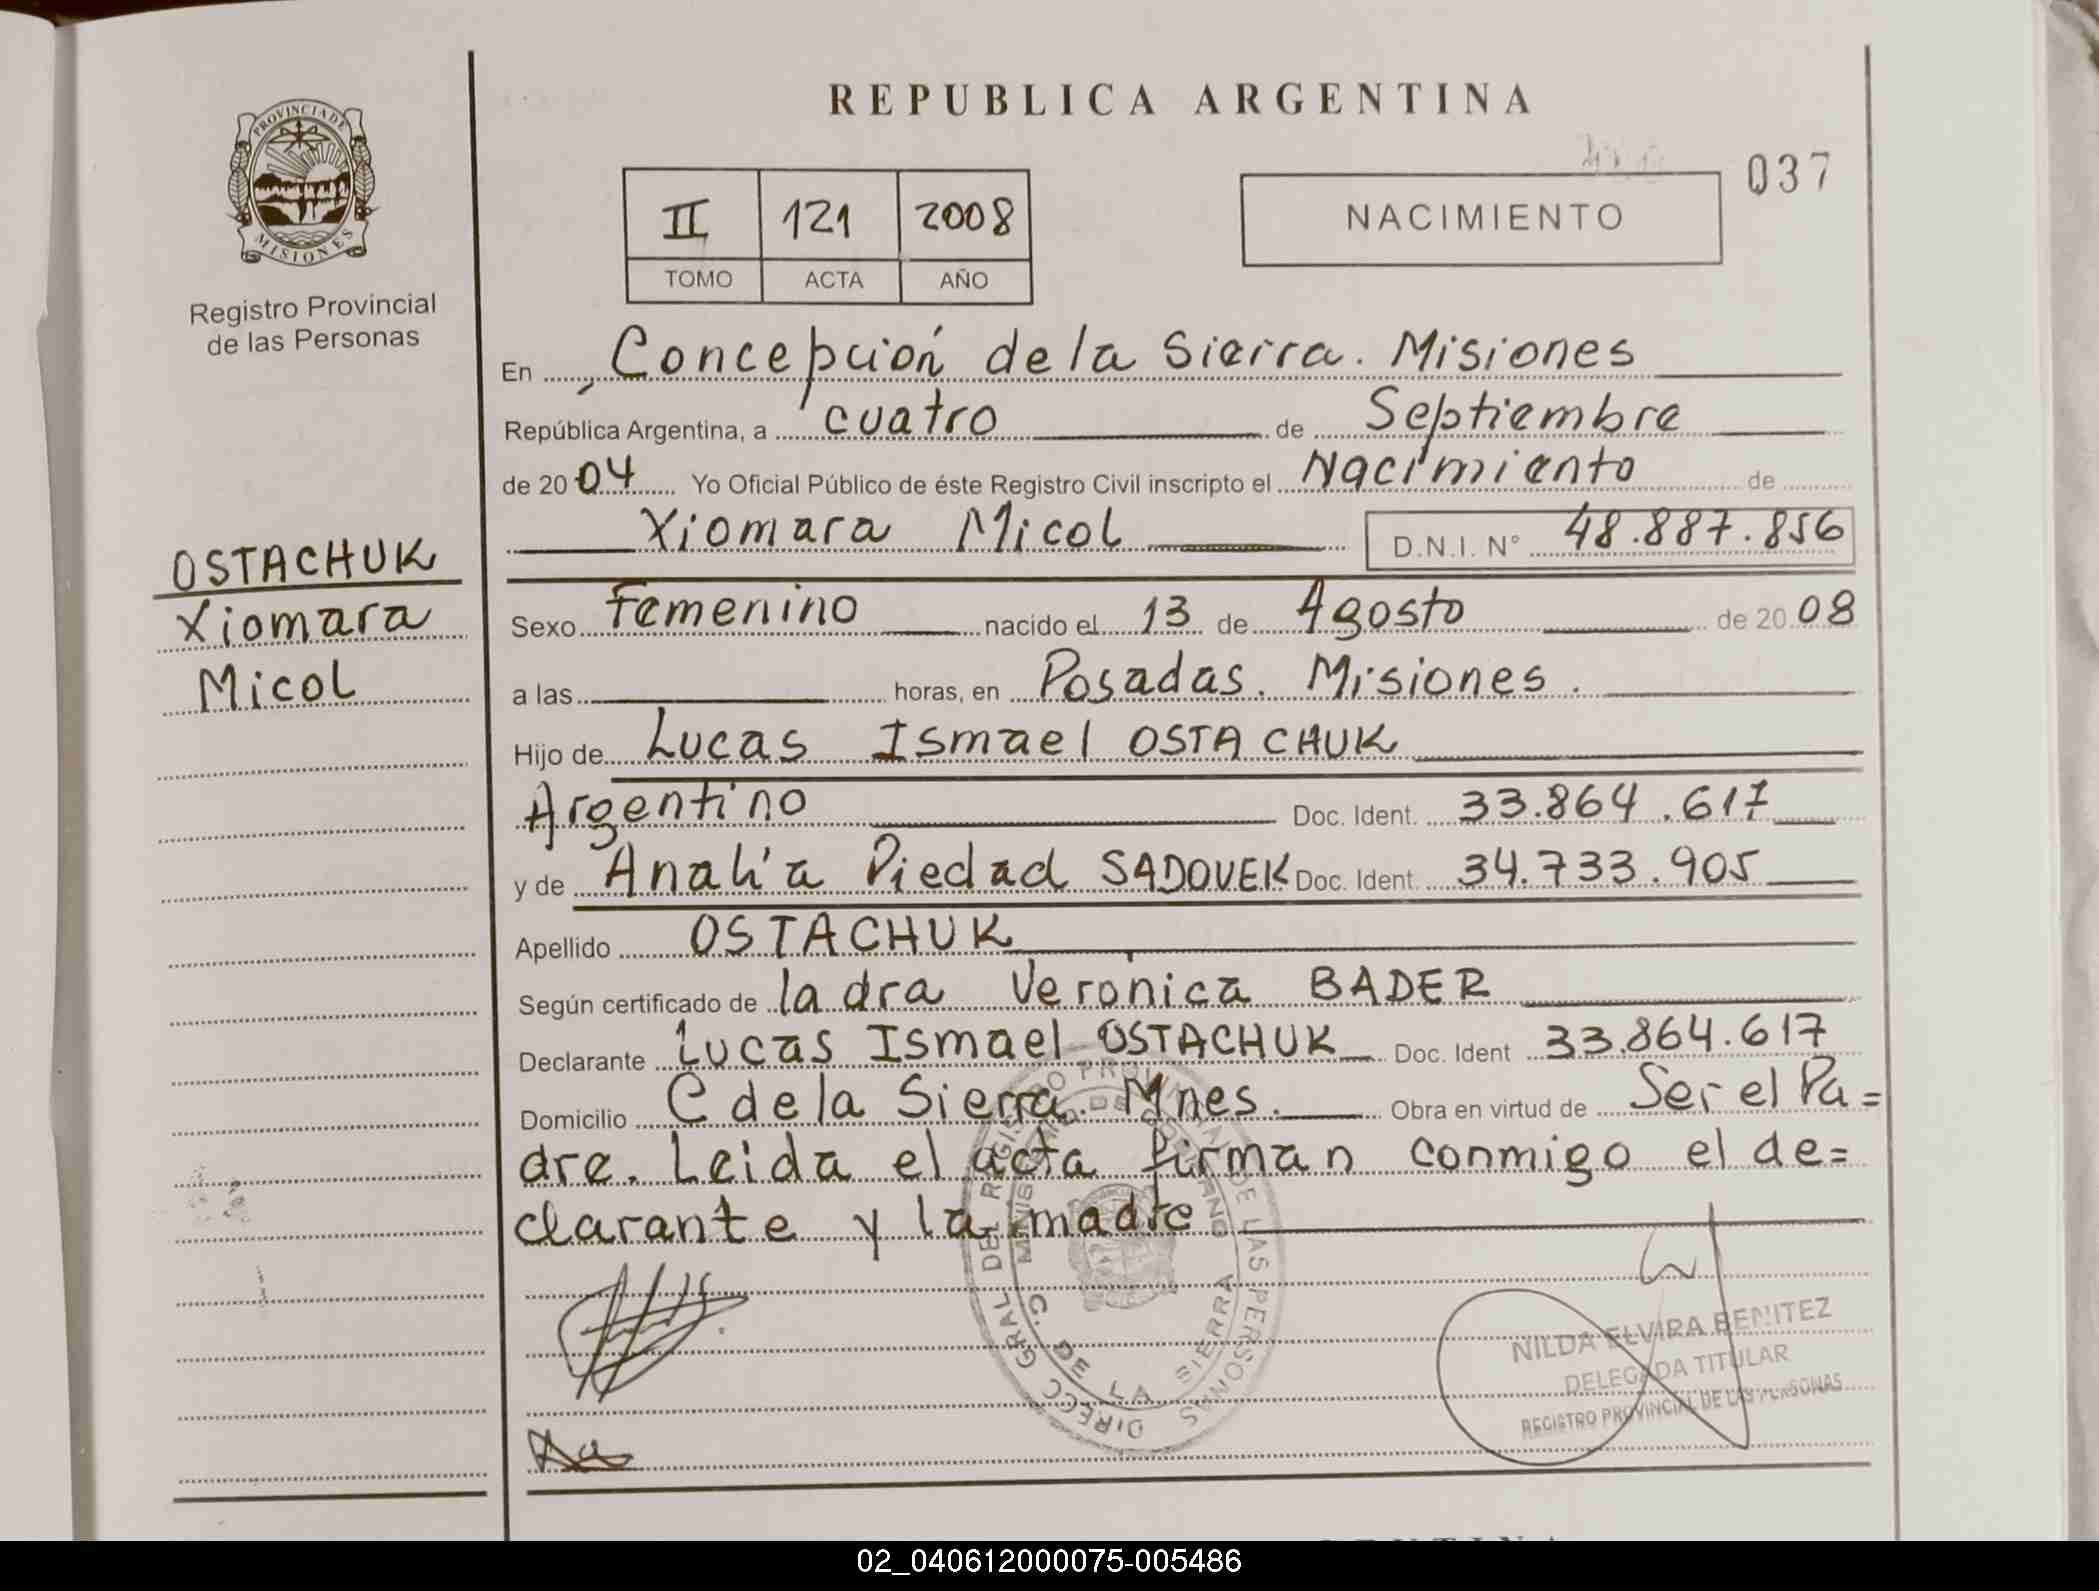 REPUBLICA ARGENTINA
PROVINCIA DE
MISIONES
Registro Provincial
de las Personas
II 121 2008
TOMO ACTA AÑO
NACIMIENTO
037
En Concepción de la Sierra. Misiones
República Argentina, a cuatro de Septiembre
de 2004 Yo Oficial Público de éste Registro Civil inscripto el Nacimiento de
Xiomara Micol D.N.I. N° 48.887.856
OSTACHUK
Xiomara
Micol
Sexo Femenino nacido el 13 de Agosto de 2008
a las horas, en Posadas. Misiones.
Hijo de Lucas Ismael OSTACHUK
Argentino Doc. Ident. 33.864.617
y de Analía Piedad SADOVEK Doc. Ident. 34.733.905
Apellido OSTACHUK
Según certificado de la dra Veronica BADER
Declarante Lucas Ismael OSTACHUK Doc. Ident 33.864.617
Domicilio C de la Sierra. Mnes. Obra en virtud de Ser el Pa=
dre. Leida el acta firman conmigo el de=
clarante y la madre
DIREC GRAL DEL REGISTRO PROVINCIAL DE LAS PERSONAS
MINISTERIO DE GOBIERNO
C. DE LA SIERRA
NILDA ELVIRA BENITEZ
DELEGADA TITULAR
REGISTRO PROVINCIAL DE LAS PERSONAS
02_040612000075-005486